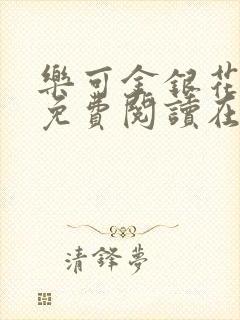 樂可金銀花
免費閱讀在
清鋒夢